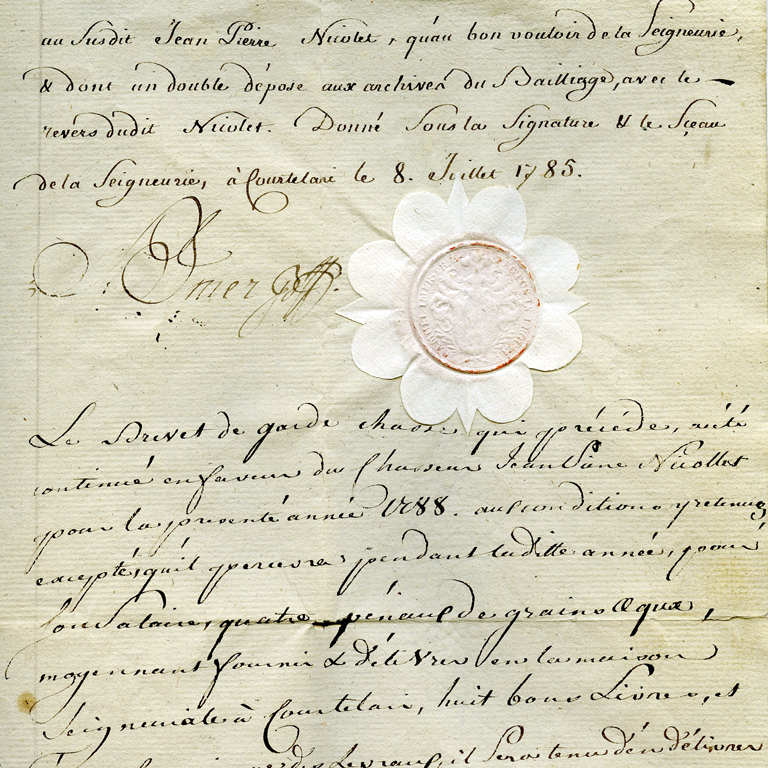 au Susdit Jean Pierre Nicolet, qu'au bon vouloir de la Seigneurie,
& dont un double déposé aux archives du Bailliage, avec le
revers dudit Nicolet. Donné sous la Signature & le Sçeau
de la Seigneurie, à Courtelari le 8. Juillet 1785.
Imer
Le Brevet de garde chasse qui précéde, a été
continué en faveur du Chasseur Jean Piere Nicollet
pour la présente année 1788. aux conditions y retenues
exceptés qu'il percevra pendant laditte année, pour
Son Salaire, quatre pénaux de grains Œque,
moyennant fournir & délivrer en la maison
Seigneuriale à Courtelari, huit bons Livres, et
des Levraux, il Sera tenu d'en délivrer